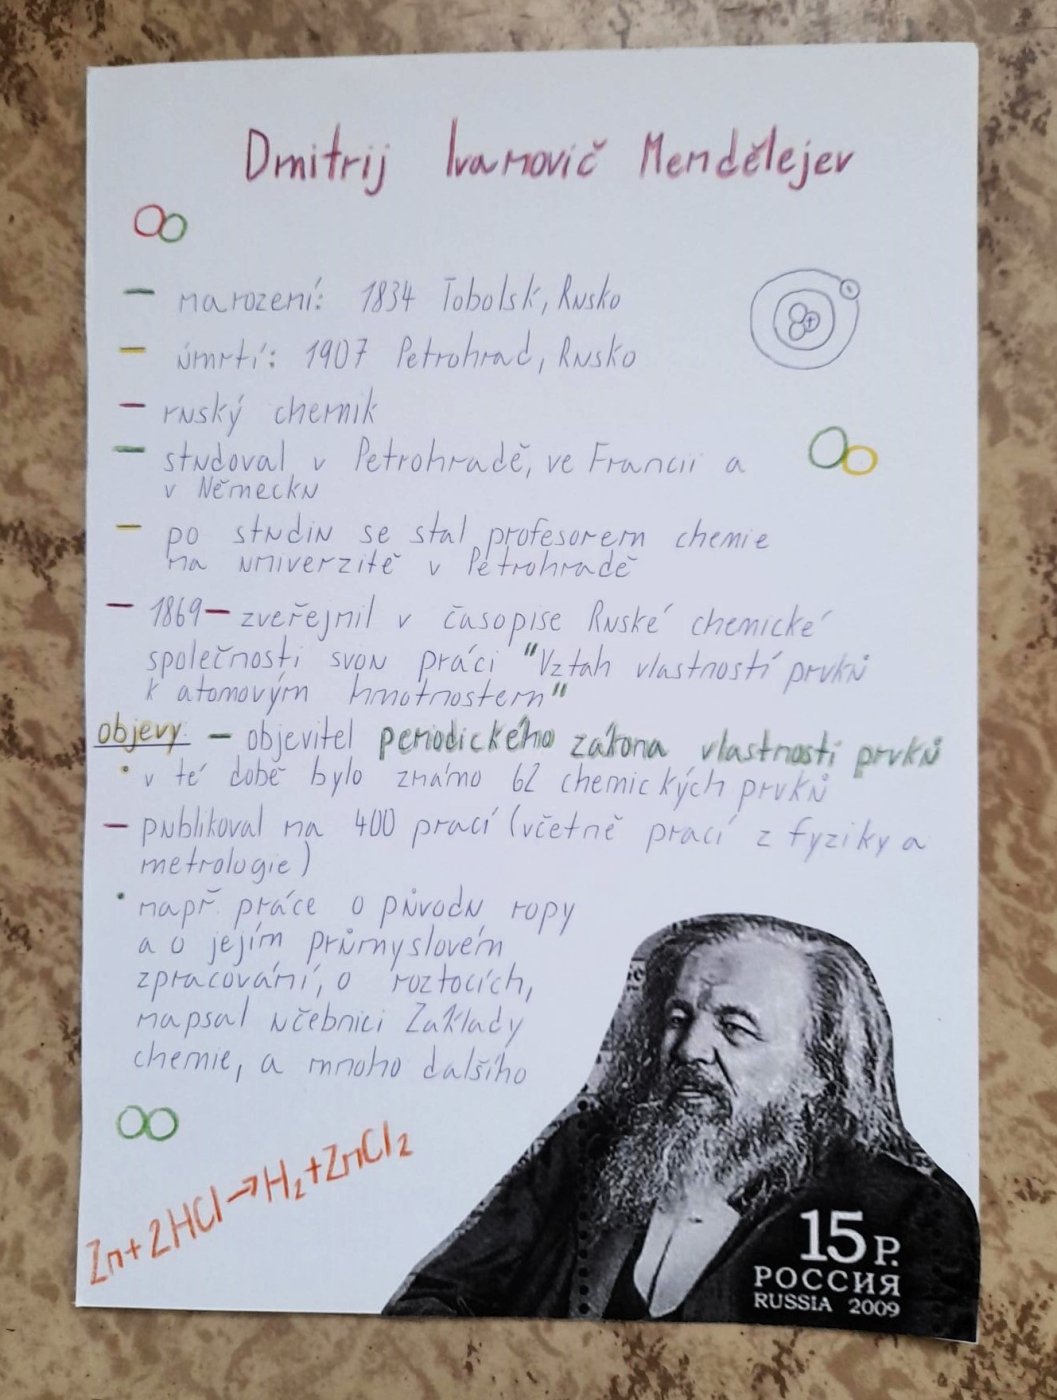 Dmitrij Ivanovič Mendělejev
narození: 1834 Tobolsk, Rusko
úmrtí: 1907 Petrohrad, Rusko
ruský chemik
studoval v Petrohradě, ve Francii a
v Německu
po studiu se stal profesorem chemie
na univerzitě v Petrohradě
1869 – zveřejnil v časopise Ruské chemické
společnosti svou práci "Vztah vlastností prvků
k atomovým hmotnostem"
objevy – objevitel periodického zákona vlastností prvků
• v té době bylo známo 62 chemických prvků
– publikoval na 400 prací (včetně prací z fyziky a
metrologie)
• např. práce o původu ropy
a o jejím průmyslovém
zpracování, o roztocích,
napsal učebnici Základy
chemie, a mnoho dalšího
Zn+2HCl→H₂+ZnCl₂
15 Р.
РОССИЯ
RUSSIA 2009